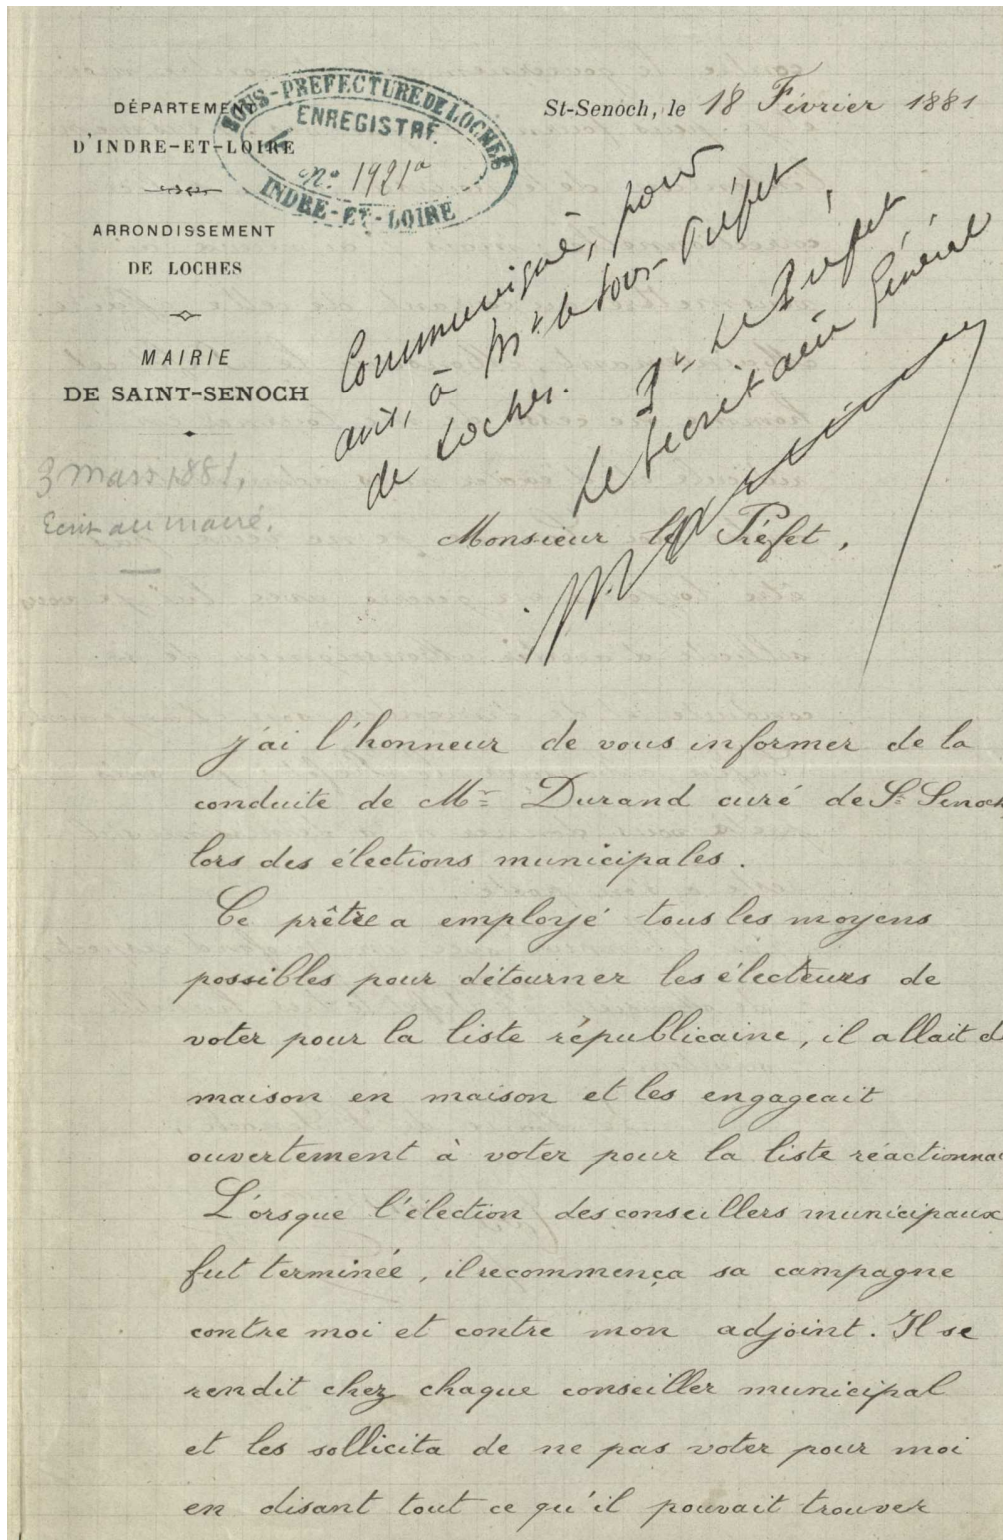 DÉPARTEMENT
D'INDRE-ET-LOIRE
ARRONDISSEMENT
DE LOCHES
MAIRIE
DE SAINT-SENOCH
SOUS-PREFECTURE DE LOCHES
ENREGISTRÉ
N° 1921a
INDRE-ET-LOIRE
St-Senoch, le 18 Février 1881
Communiqué, pour
avis, à Mr le Sous-Préfet
de Loches.
Pr Le Préfet,
Le Secrétaire Général
3 mars 1881,
Ecrit au maire.
Monsieur le Préfet,
j'ai l'honneur de vous informer de la
conduite de Mr Durand curé de St Senoch
lors des élections municipales.
Ce prêtre a employé tous les moyens
possibles pour détourner les électeurs de
voter pour la liste républicaine, il allait d
maison en maison et les engageait
ouvertement à voter pour la liste réactionna
L'orsque l'élection des conseillers municipaux
fut terminée, il recommença sa campagne
contre moi et contre mon adjoint. Il se
rendit chez chaque conseiller municipal
et les sollicita de ne pas voter pour moi
en disant tout ce qu'il pouvait trouver